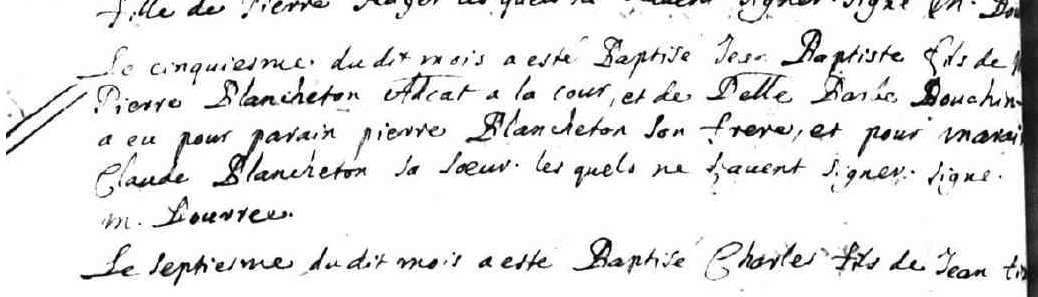 fille de Pierre Roger les quels ne sçavent signer. signé m.
Le cinquiesme du dit mois a esté Baptisé Jean Baptiste fils de
Pierre Blancheton Advcat a la cour, et de Delle Barbe Bouchin
a eu pour parain pierre Blancheton son frere, et pour marai
Claude Blancheton sa soeur. les quels ne sçavent signer. signé.
m. Bouvree.
Le septiesme du dit mois a esté Baptisé Charles fils de Jean